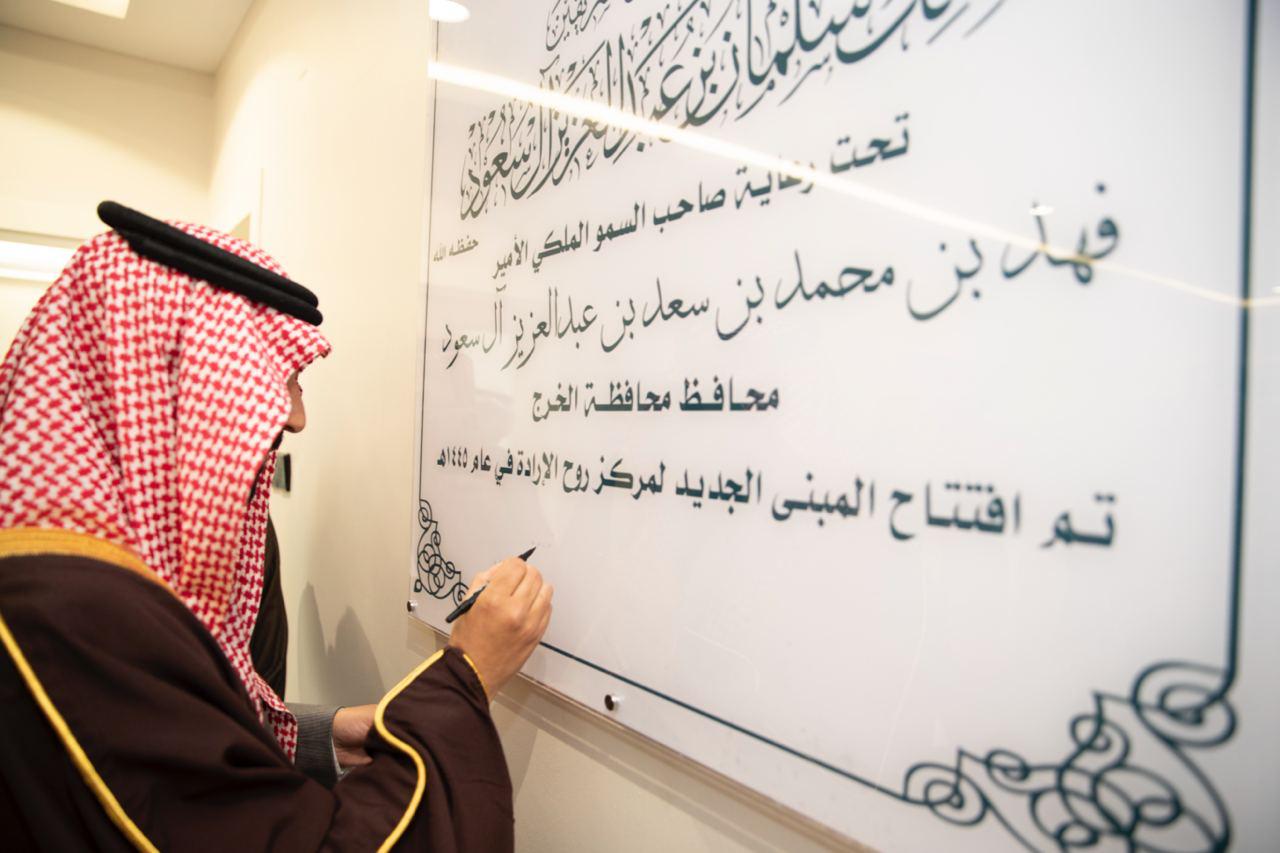 سلمان بن عبدالعزيز آل سعود
حفظه الله
تحت رعاية صاحب السمو الملكي الأمير
فهد بن محمد بن سعد بن عبدالعزيز آل سعود
محافظ محافظة الخرج
تم افتتاح المبنى الجديد لمركز روح الإرادة في عام ١٤٤٥هـ